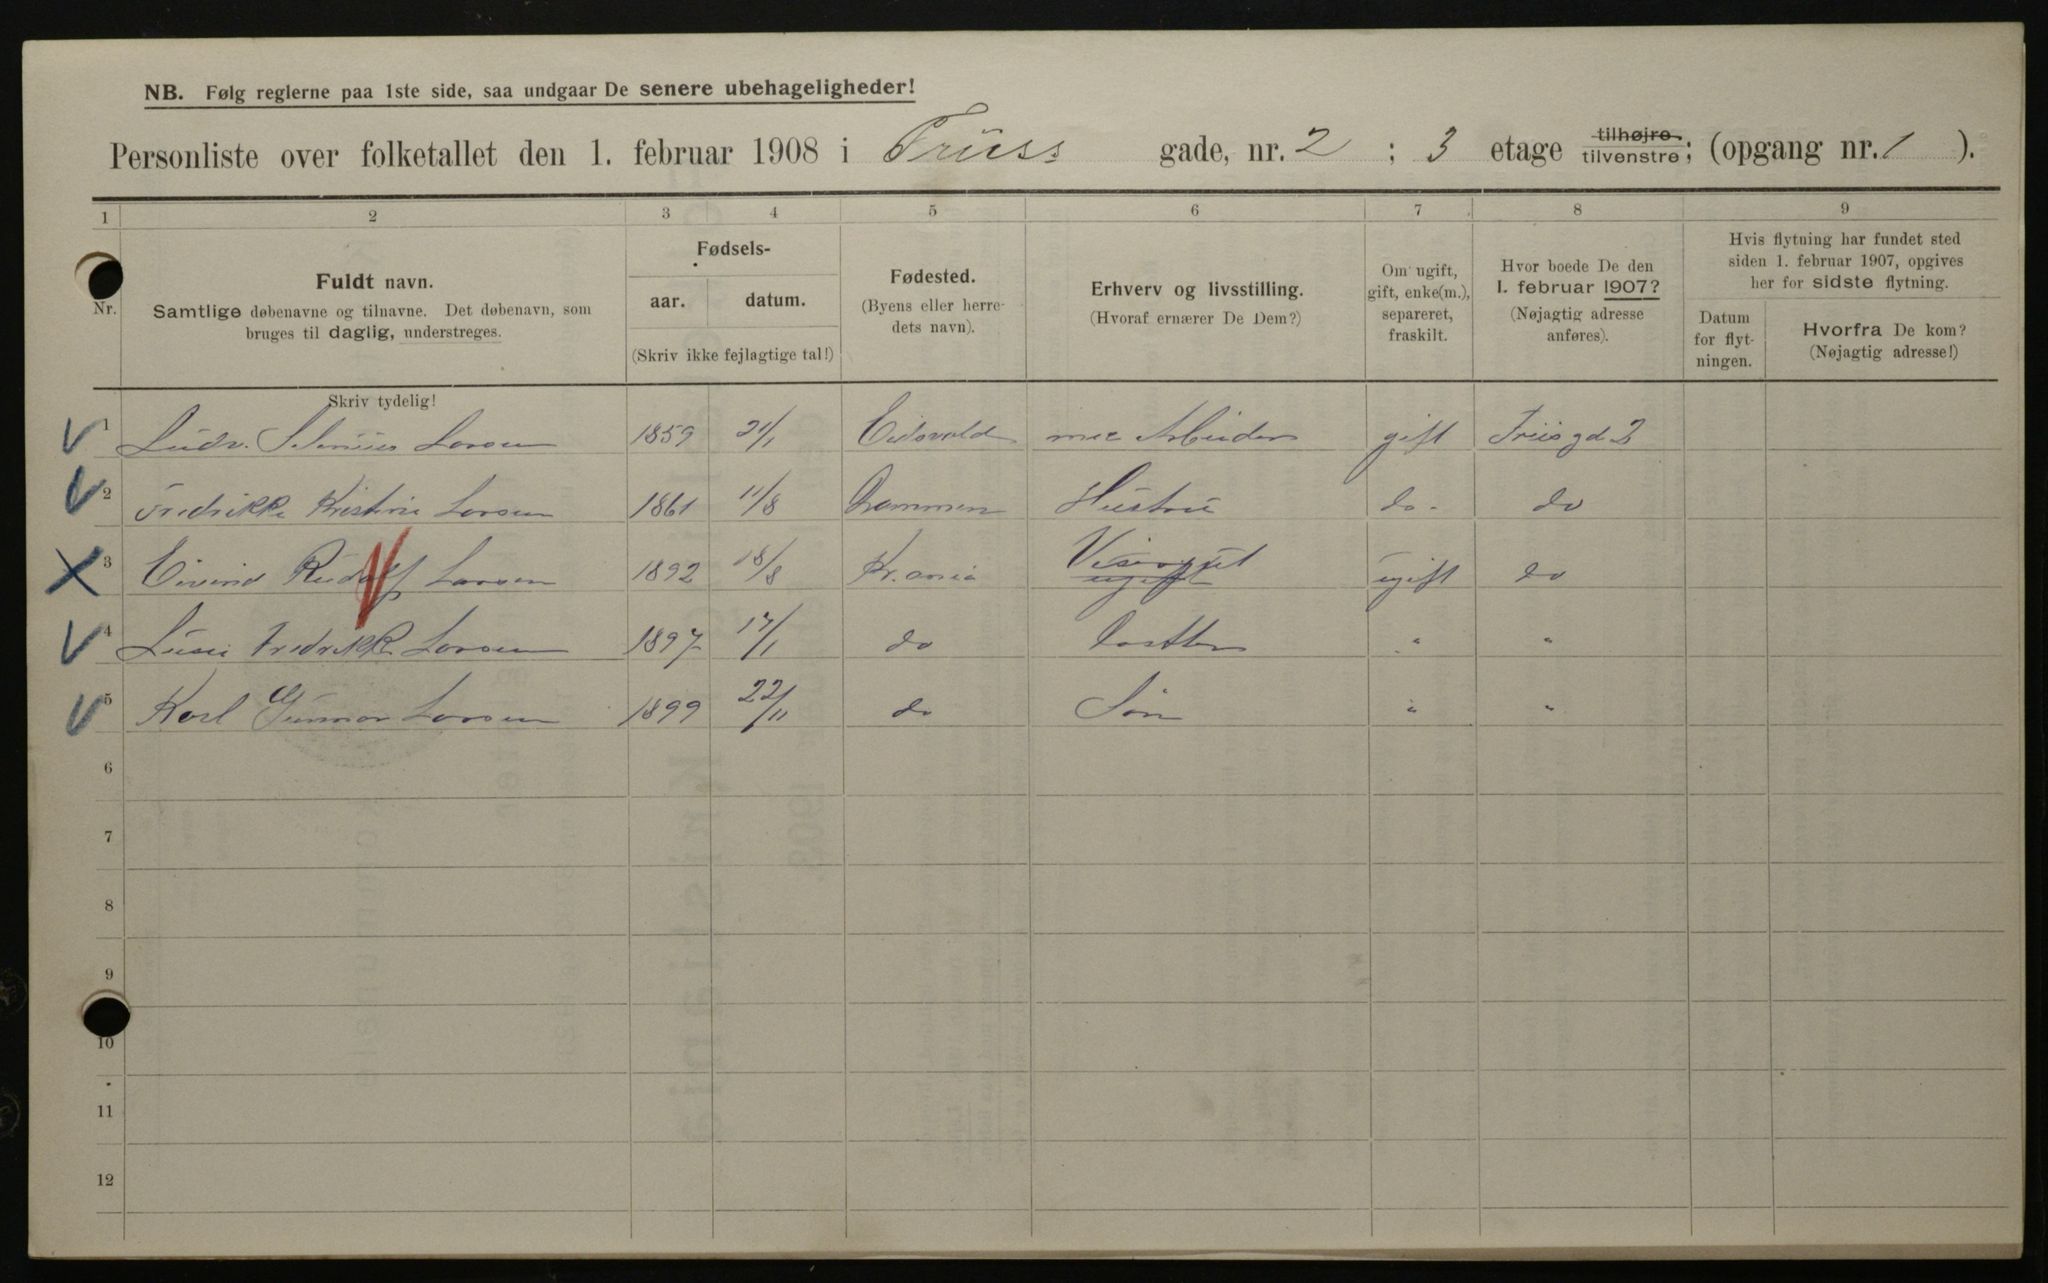 NB. Følg reglerne paa 1ste side, saa undgaar De senere ubehageligheder!
Personliste over folketallet den 1. februar 1908 i Friiss gade, nr. 2 ; 3 etage tilhøjre tilvenstre; (opgang nr. 1 ).
1 2 3 4 5 6 7 8 9
Nr.
Fuldt navn.
Samtlige døbenavne og tilnavne. Det døbenavn, som
bruges til daglig, understreges.
Skriv tydelig!
Fødsels-
aar. datum.
(Skriv ikke fejlagtige tal!)
Fødested.
(Byens eller herre-
dets navn).
Erhverv og livsstilling.
(Hvoraf ernærer De Dem?)
Om ugift,
gift, enke(m.),
separeret,
fraskilt.
Hvor boede De den
1. februar 1907?
(Nøjagtig adresse
anføres).
Hvis flytning har fundet sted
siden 1. februar 1907, opgives
her for sidste flytning.
Datum
for flyt-
ningen.
Hvorfra De kom?
(Nøjagtig adresse!)
1 Ludv. Larsen 1859 21/1 Eidsvold mec Arbeider gift Friisgd 2
2 Fredrikke Kristine Larsen 1861 11/8 Drammen Hustru do. do
3 Eivind Rudolf Larsen 1892 18/8 Kr.ania Visergut ugift ugift do
4 Fredrikke Larsen 1897 17/1 do Datter " "
5 Karl Gunnar Larsen 1899 22/11 do Søn " "
6
7
8
9
10
11
12